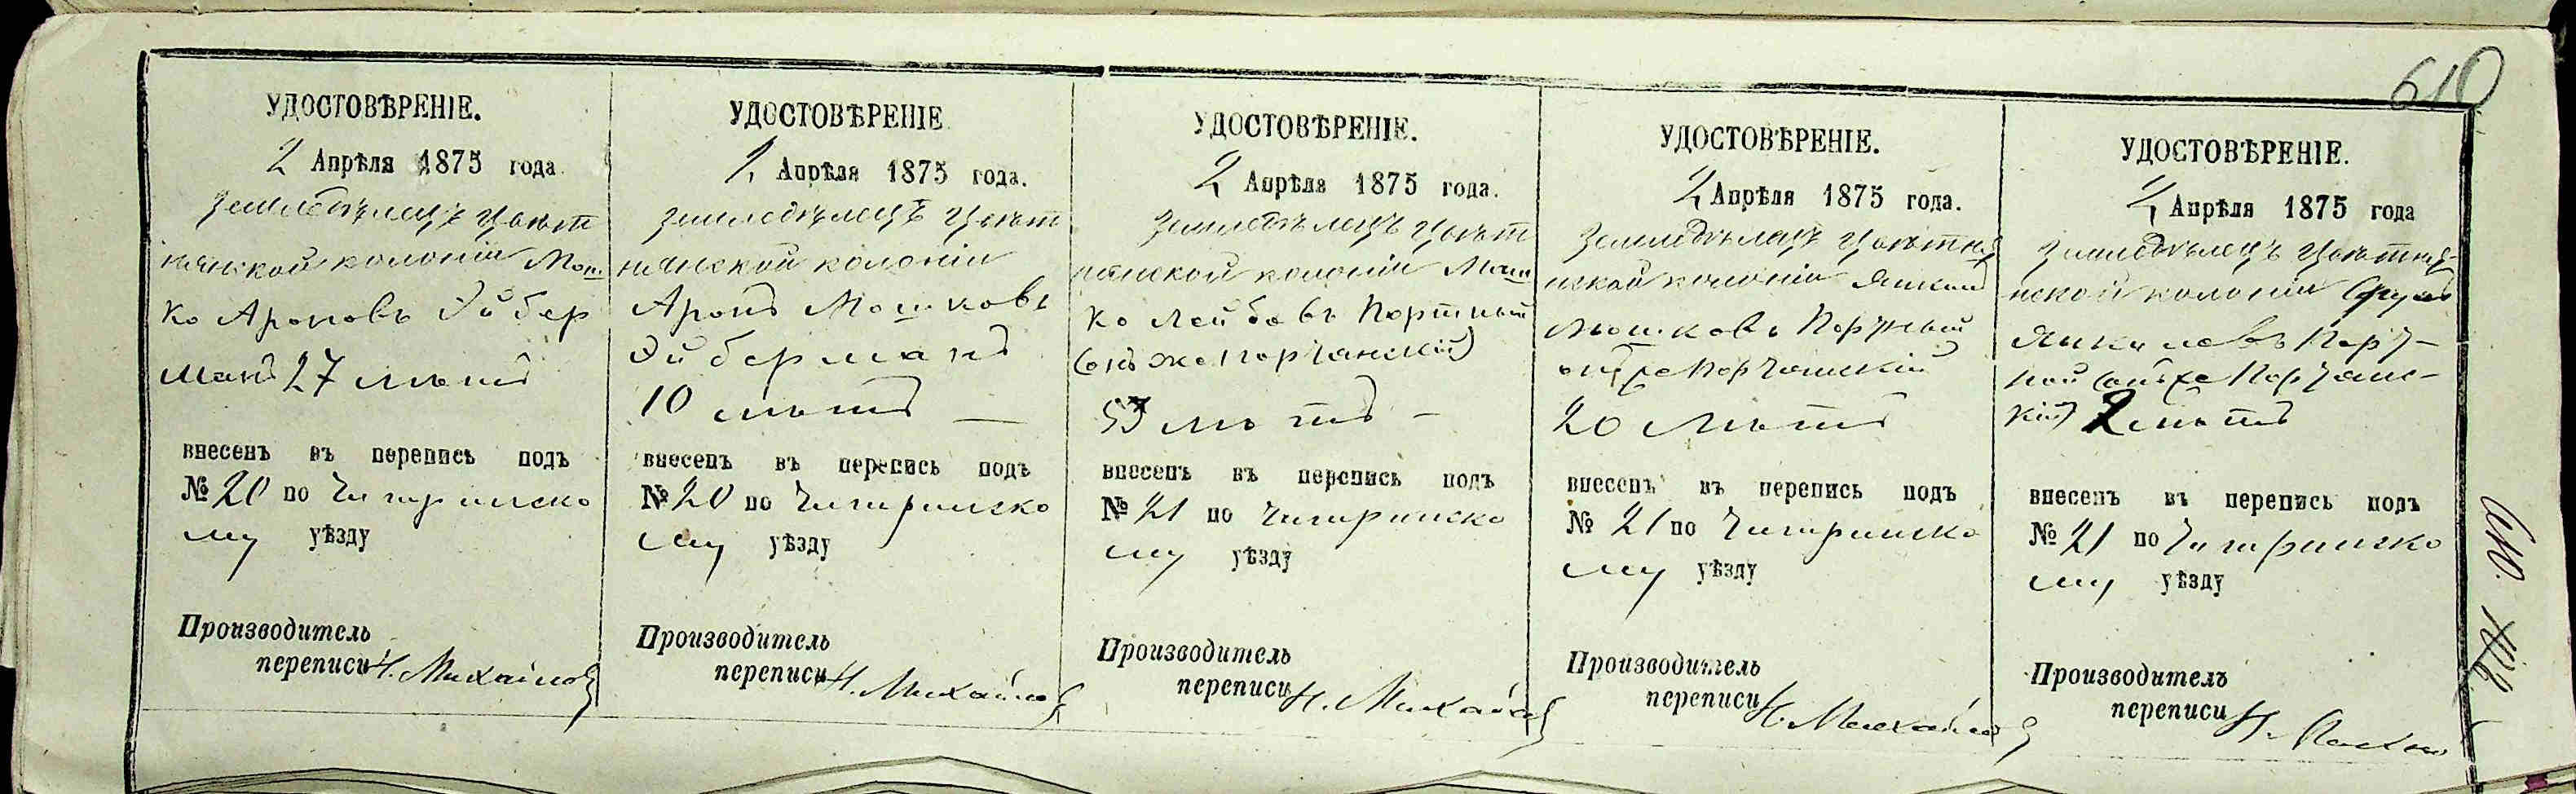 610
УДОСТОВѢРЕНІЕ.
2 Апрѣля 1875 года.
Земледѣлецъ Цвѣт
нянской колоніи Мош
ко Ароновъ Эйбер
манъ 27 лѣтъ
внесенъ въ перепись подъ
№ 20 по Чигиринско
му уѣзду
Производитель
переписи Н. Михайлов
УДОСТОВѢРЕНІЕ
2 Апрѣля 1875 года.
Земледѣлецъ Цвѣт
нянской колоніи
Аронъ Мошковъ
Эйберманъ
10 лѣтъ —
внесенъ въ перепись подъ
№ 20 по Чигиринско
му уѣзду
Производитель
переписи Н. Михайлов
УДОСТОВѢРЕНІЕ.
2 Апрѣля 1875 года.
Земледѣлецъ Цвѣт
нянской колоніи Мош
ко Лейбовъ Портный
(онъ же Портянскій)
53 лѣтъ —
внесенъ въ перепись подъ
№ 21 по Чигиринско
му уѣзду
Производитель
переписи Н. Михайлов
УДОСТОВѢРЕНІЕ.
2 Апрѣля 1875 года.
Земледѣлецъ Цвѣтня
нской колоніи Янкель
Мошковъ Портный
онъ же Портянскій
20 лѣтъ
внесенъ въ перепись подъ
№ 21 по Чигиринско
му уѣзду
Производитель
переписи Н. Михайлов
УДОСТОВѢРЕНІЕ.
2 Апрѣля 1875 года
Земледѣлецъ Цвѣтня-
нской колоніи
Янкелевъ Порт-
ной (онъ же Портянс-
кій) 2 лѣтъ
внесенъ въ перепись подъ
№ 21 по Чигиринско
му уѣзду
Производитель
переписи Н. Михай